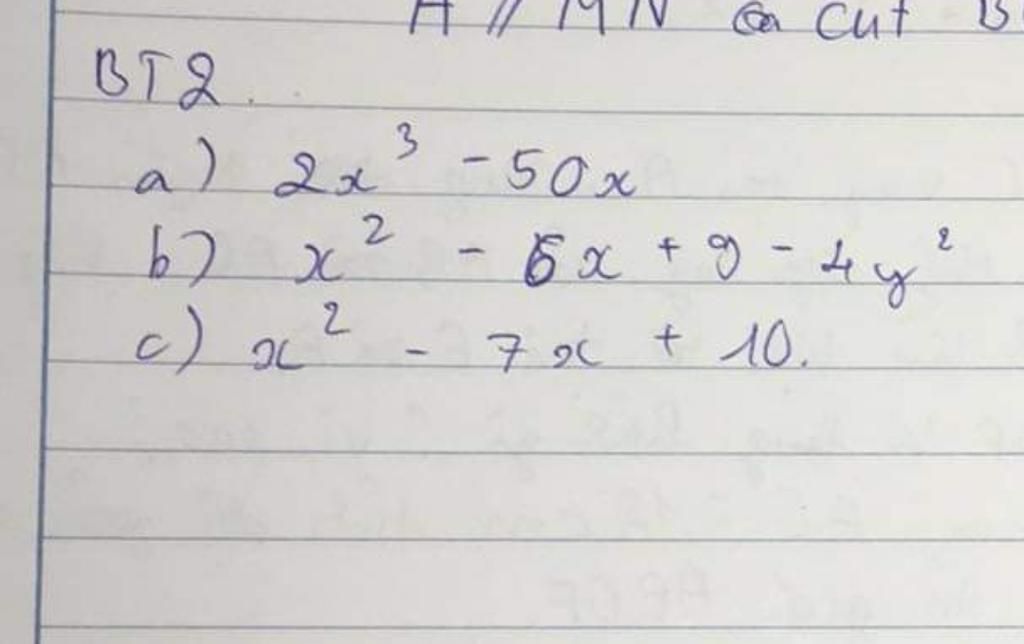 A // MN cut B
BT2.
a) 2x³ - 50x
b) x² - 6x + 9 - 4y²
c) x² - 7x + 10.